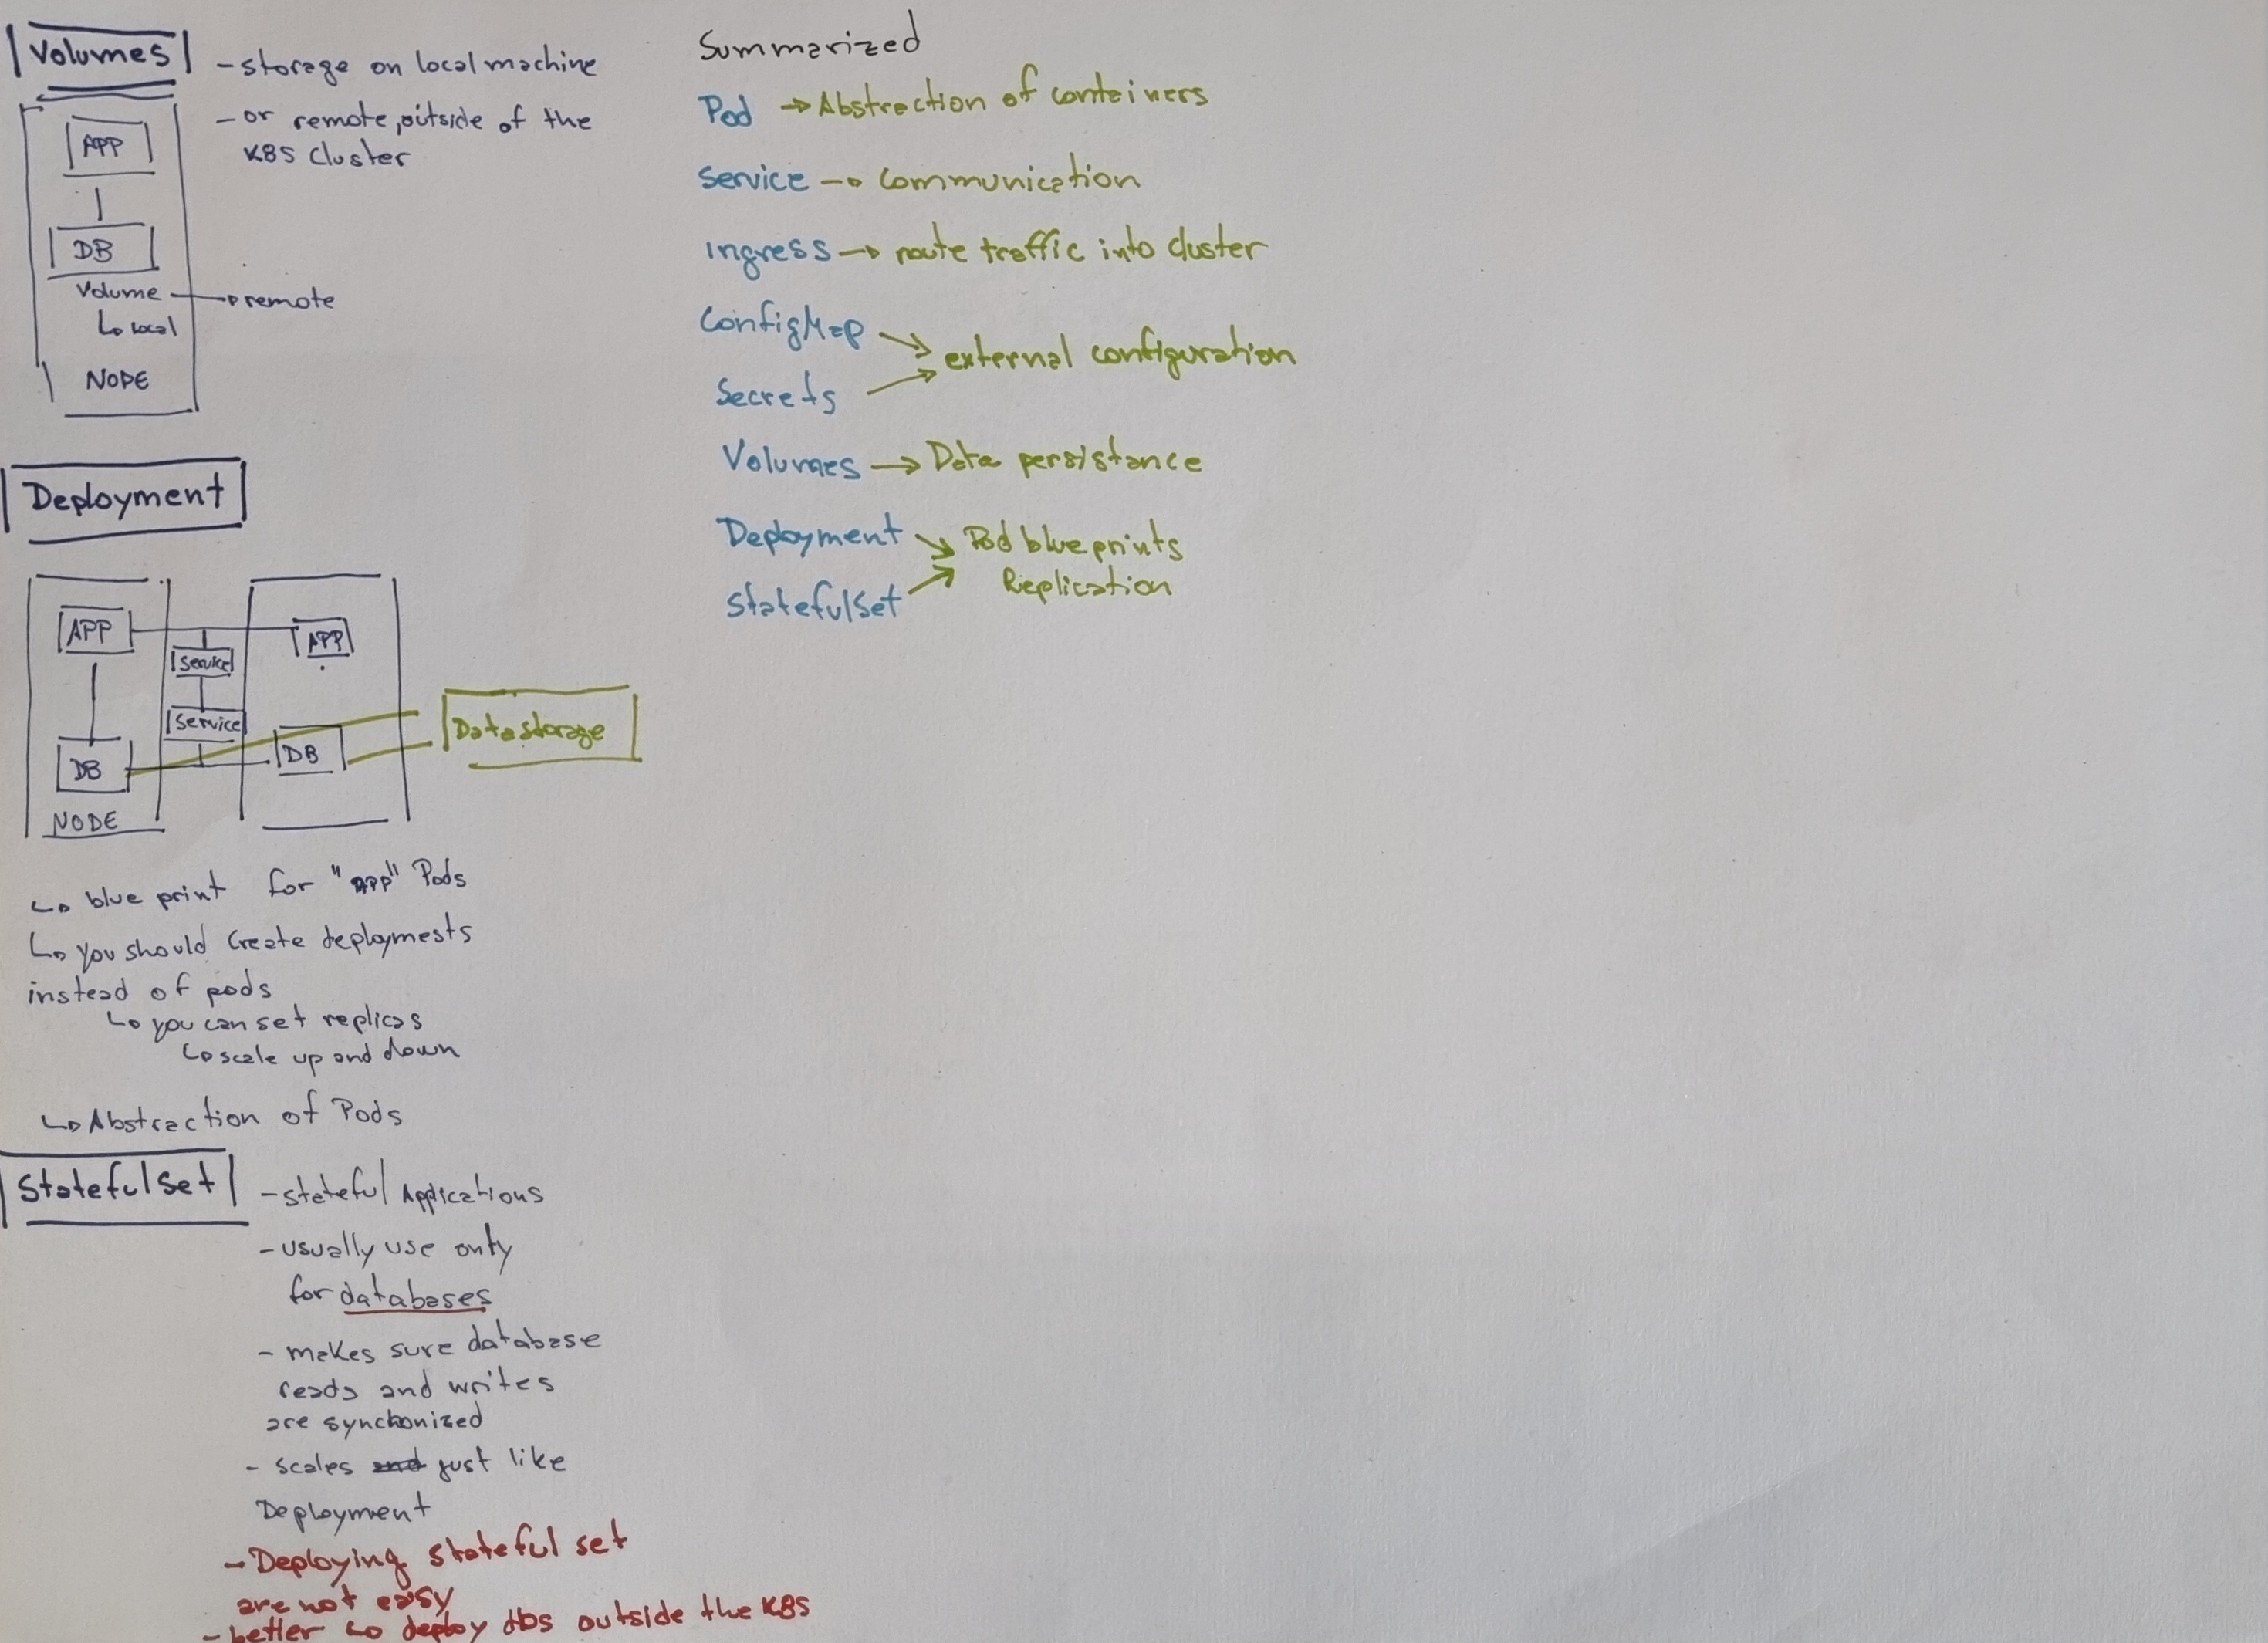 Volumes
- storage on local machine
- or remote, outside of the
K8S Cluster
APP
DB
Volume → remote
↳ local
NODE
Deployment
APP
APP
Service
Service
DB
DB
Data storage
NODE
↳ blue print for "APP" Pods
↳ you should create deploymests
instead of pods
↳ you can set replicas
↳ scale up and down
↳ Abstraction of Pods
StatefulSet
- stateful Applications
- usually use only
for databases
- makes sure database
reads and writes
are synchonized
- scales and just like
Deployment
- Deploying stateful set
are not easy
- better to deploy dbs outside the K8S
Summarized
Pod → Abstraction of containers
Service → Communication
Ingress → route traffic into cluster
ConfigMap
external configuration
Secrets
Volumes → Data persistance
Deployment → Pod blue prints
Replication
StatefulSet